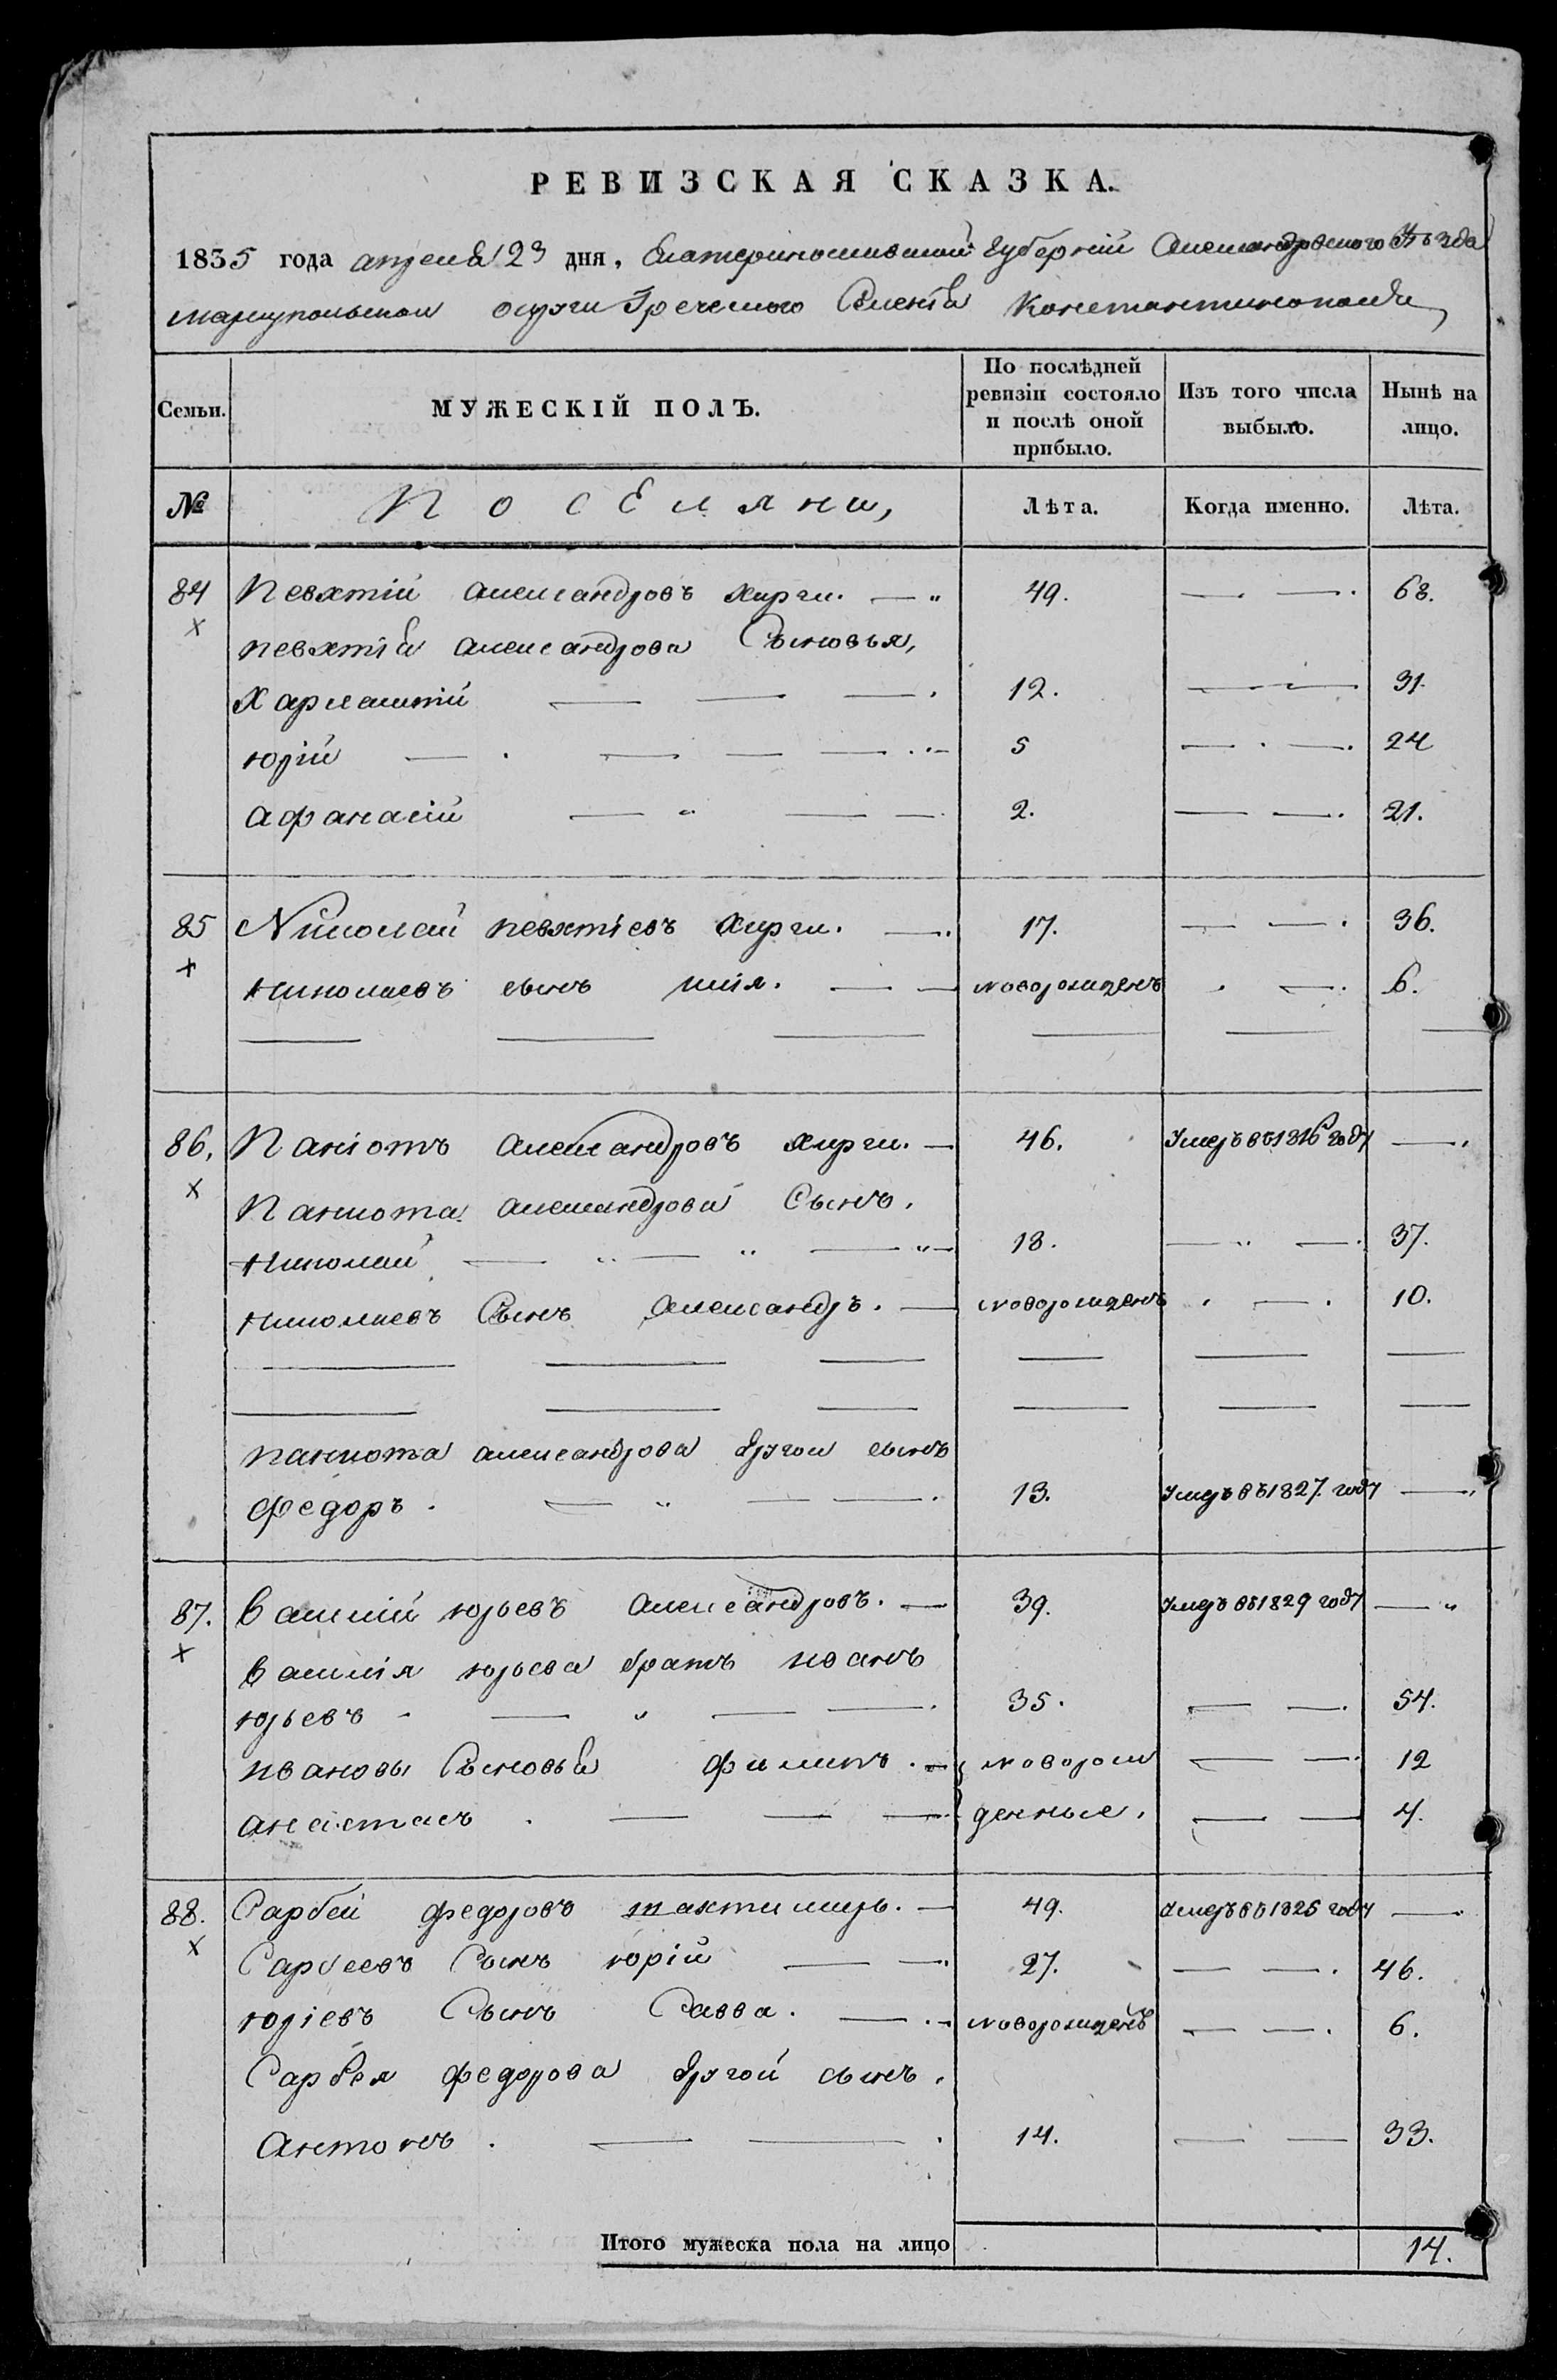 РЕВИЗСКАЯ СКАЗКА.
1835 года апреля 23 дня, Екатеринославской Губерніи Александровского Уѣзда
мариупольскои округи Греческого Селенія Константинополя
Семьи. МУЖЕСКІЙ ПОЛЪ. По послѣдней ревизіи состояло и послѣ оной прибыло. Изъ того числа выбыло. Нынѣ на лицо.
№ Поселяни, Лѣта. Когда именно. Лѣта.
84 Певхтій александровъ хиргии. 49. 68.
певхтія александрова Сыновья,
Харлампій 12. 31.
юрій 5 24
афанасій 2. 21.
85 Николай певхтіевъ 17. 36.
николаевъ сынъ илія. новорожденъ 6.
86. Паніотъ александровъ 46. Умеръ въ 1816 году
Паниота александрова Сынъ.
николай 18. 37.
николаевъ Сынъ александръ. новорожденъ 10.
паниота александрова другои сынъ
федоръ. 13. Умеръ въ 1827. году
87. василій юрьевъ александровъ. 39. Умеръ въ 1829 году
василія юрьева братъ иванъ
юрьевъ 35. 54.
ивановы Сыновья филипъ. новорож 12
анастасъ. денные. 4.
88. Сарбей федоровъ 49. Умеръ въ 1826 году
Сарбеевъ Сынъ юрій 27. 46.
юріевъ Сынъ Савва. новорожденъ 6.
Сарбея федорова другой сынъ.
антонъ. 14. 33.
Итого мужеска пола на лицо 14.